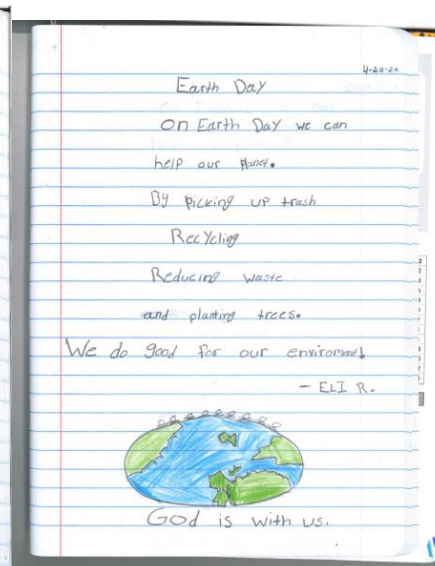 4-20-20
Earth Day
On Earth Day we can
help our planet.
By Picking up trash
Recycling
Reducing waste
and planting trees.
We do good for our enviroment!
- ELI R.
God is with us.